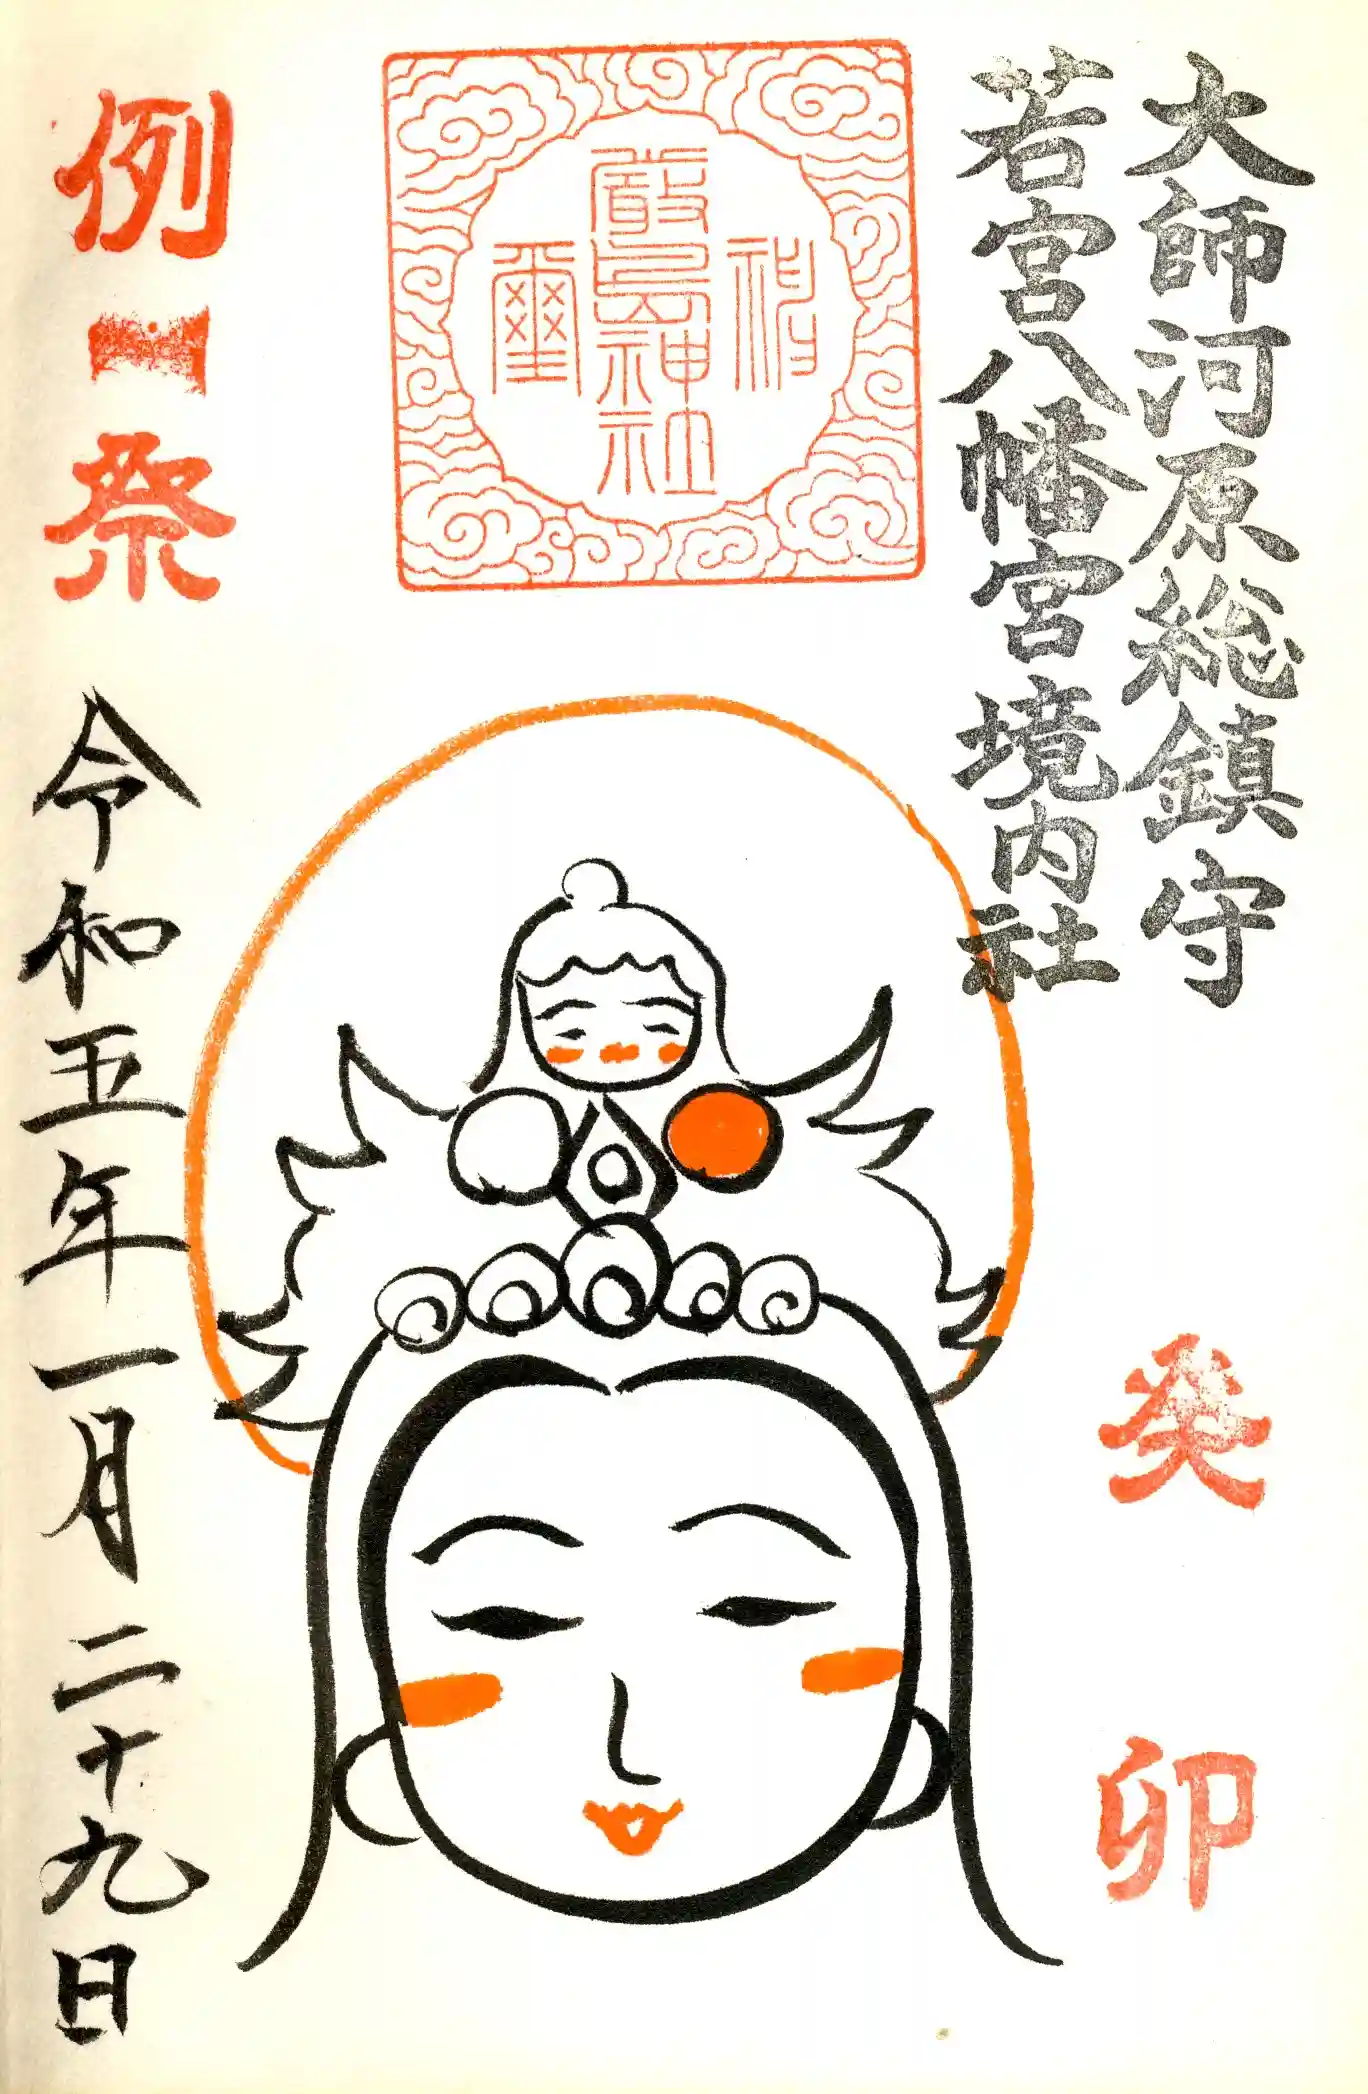 大師河原総鎮守
若宮八幡宮境内社
癸卯
嚴島神社
例祭
令和五年一月二十九日